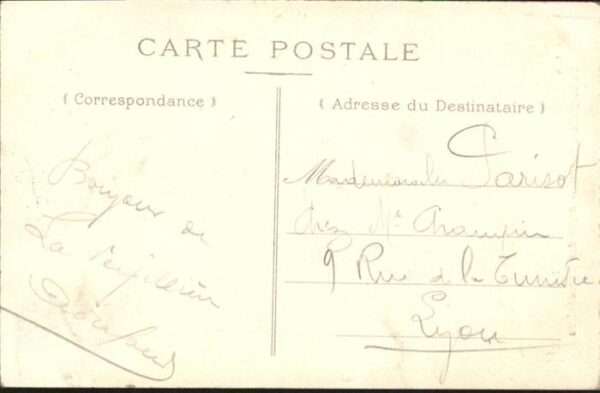 CARTE POSTALE
( Correspondance )
( Adresse du Destinataire )
Bonjour de
La
Mademoiselle Parisot
chez Me Champin
9 Rue de la
Lyon